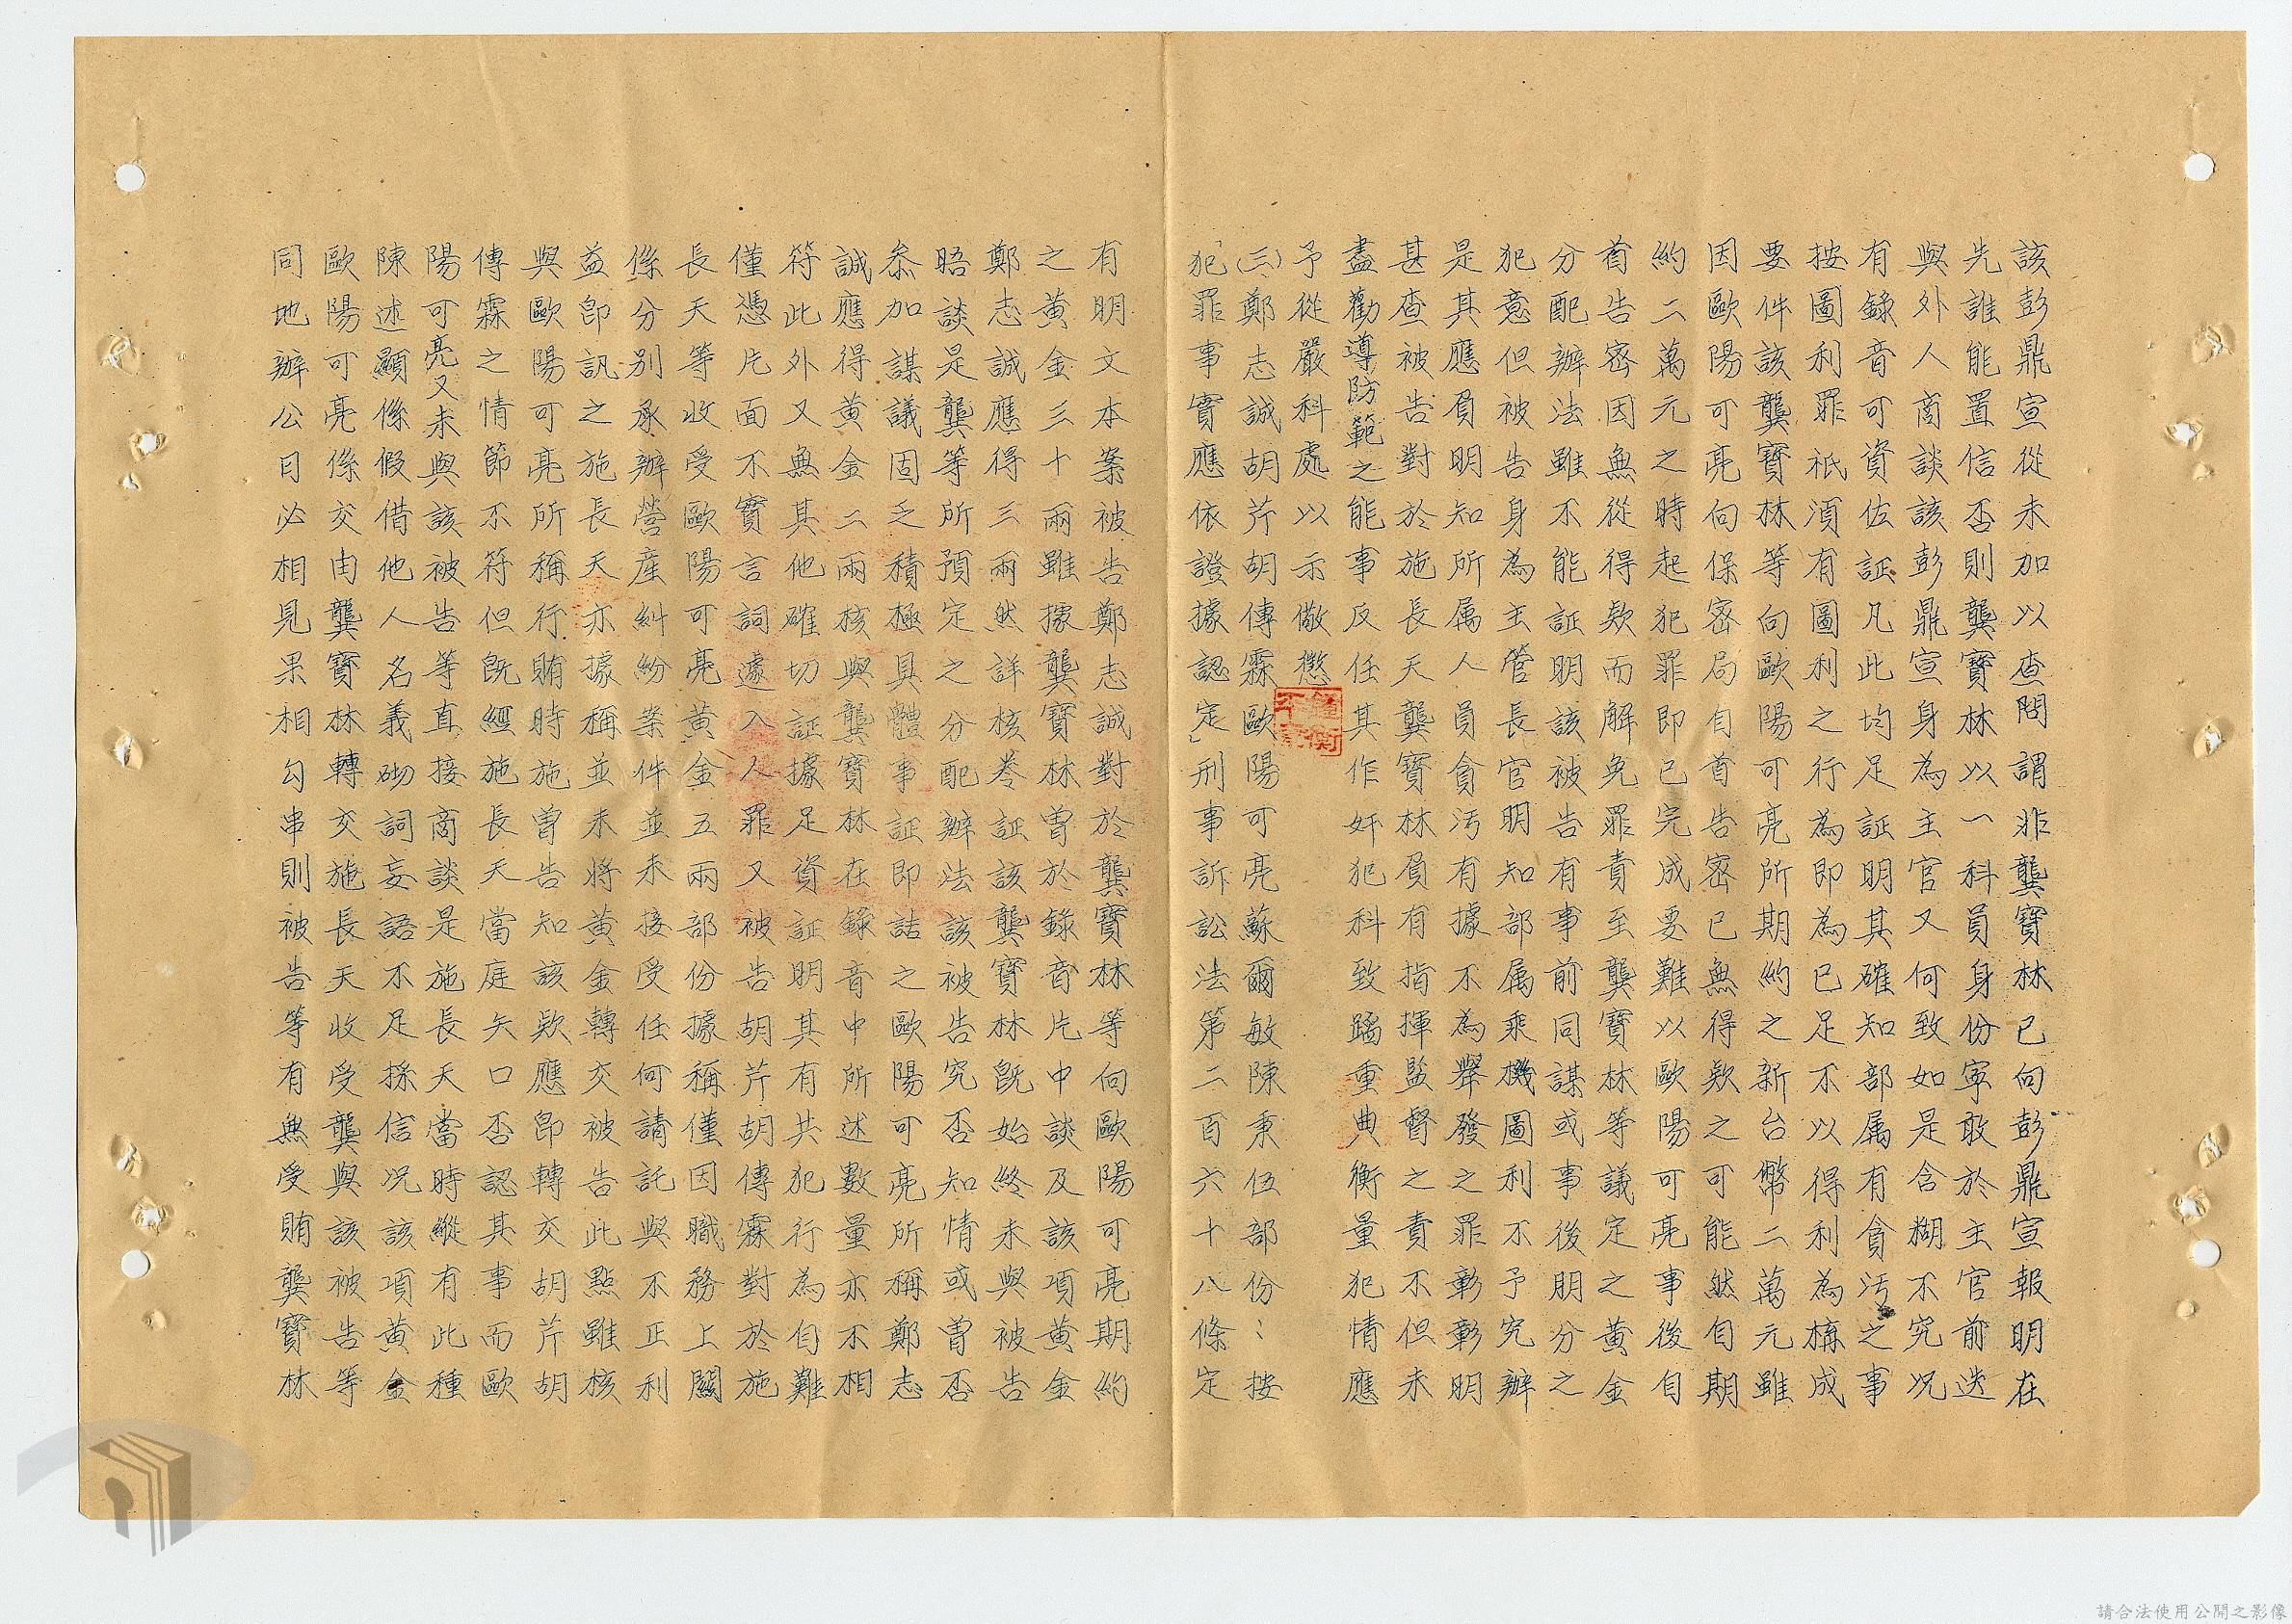 該彭鼎宣從未加以查問謂非龔寶林已向彭鼎宣報明在
先誰能置信否則龔寶林以一科員身份寧敢於主官前迭
與外人商談該彭鼎宣身為主官又何致如是含糊不究况
有錄音可資佐証凡此均足証明其確知部属有貪污之事
按圖利罪祇須有圖利之行為即為已足不以得利為構成
要件該龔寶林等向歐陽可亮所期約之新台幣二萬元雖
因歐陽可亮向保密局自首告密已無得款之可能然自期
約二萬元之時起犯罪即已完成要難以歐陽可亮事後自
首告密因無從得款而解免罪責至龔寶林等議定之黃金
分配辦法雖不能証明該被告有事前同謀或事後朋分之
犯意但被告身為主管長官明知部属乘機圖利不予究辦
是其應負明知所属人員貪污有據不為舉發之罪彰彰明
甚查被告對於施長天龔寶林負有指揮監督之責不但未
盡勸導防範之能事反任其作奸犯科致蹈重典衡量犯情應
予從嚴科處以示儆懲
㈢、鄭志誠胡芹胡傳霖歐陽可亮蘇爾敏陳秉伍部份：按
「犯罪事實應依證據認定」刑事訴訟法第二百六十八條定
有明文本案被告鄭志誠對於龔寶林等向歐陽可亮期約
之黃金三十兩雖據龔寶林曾於錄音片中談及該項黃金
鄭志誠應得三兩然詳核卷証該龔寶林既始終未與被告
晤談是龔等所預定之分配辦法該被告究否知情或曾否
叅加謀議固乏積極具體事証即詰之歐陽可亮所稱鄭志
誠應得黃金二兩核與龔寶林在錄音中所述數量亦不相
符此外又無其他確切証據足資証明其有共犯行為自難
僅憑片面不實言詞遽入人罪又被告胡芹胡傳霖對於施
長天等收受歐陽可亮黃金五兩部份據稱僅因職務上關
係分别承辦營產糾紛案件並未接受任何請託與不正利
益卽訊之施長天亦據稱並未將黃金轉交被告此點雖核
與歐陽可亮所稱行賄時施曾告知該款應卽轉交胡芹胡
傳霖之情節不符但旣經施長天當庭矢口否認其事而歐
陽可亮又未與該被告等直接商談是施長天當時縱有此種
陳述顯係假借他人名義砌詞妄語不足採信况該項黃金
歐陽可亮係交由龔寶林轉交施長天收受龔與該被告等
同地辦公日必相見果相勾串則被告等有無受賄龔寶林
請合法使用公開之影像